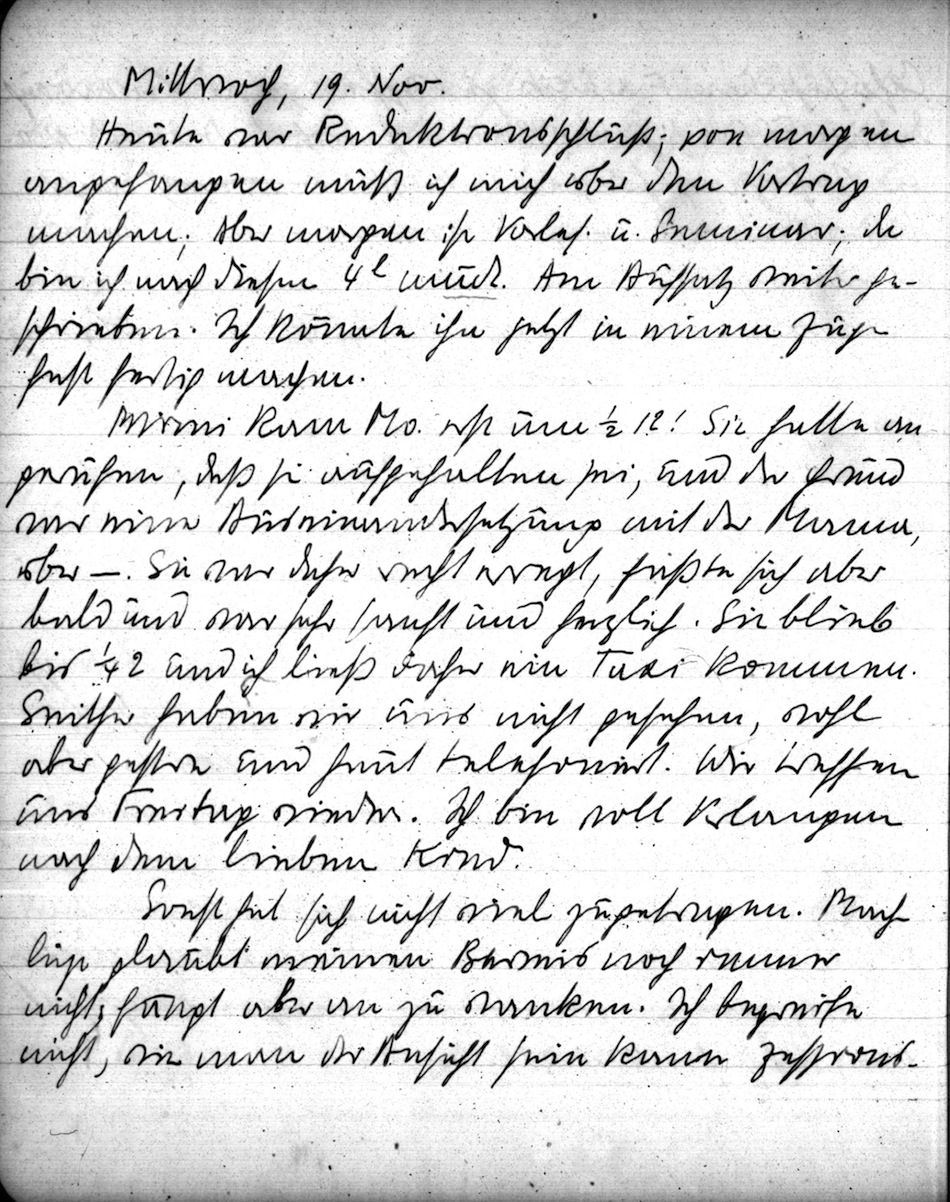 Mittwoch, 19. Nov.
Heute war Redaktionsschluß; von morgen
angefangen muß ich mich über den Vortrag
machen. Aber morgen ist Vorles. u. Seminar; da
bin ich nach diesen 4h müde. Am Aufsatz weiter ge-
schrieben. Ich könnte ihn jetzt in einem Zuge
fast fertig machen.
Mimi kam Mo. erst um ½ 12! Sie hatte an
gerufen, daß sie aufgehalten sei, und der Grund
war eine Auseinandersetzung mit der Mama,
über —. Sie war daher recht erregt, faßte sich aber
bald und war sehr sanft und herzlich. Sie blieb
bis ¼ 2 und ich ließ daher ein Taxi kommen.
Seither haben wir uns nicht gesehen, wohl
aber gestern und heut telefoniert. Wir treffen
uns Freitag wieder. Ich bin voll Verlangen
nach dem lieben Kind.
Sonst hat sich nicht viel zugetragen. Mach
lup glaubt meinen Beweis noch immer
nicht, fängt aber an zu wanken. Ich begreife
nicht, wie man der Ansicht sein kann